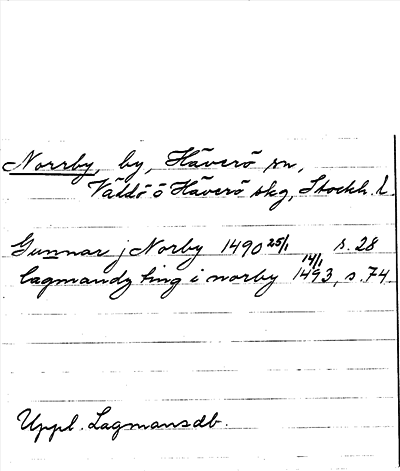 Norrby, by, Häverö sn,
Väddö ö Häverö skg, Stockh. l.
Gunnar j Norby 1490 25/1 s. 28
lagmandz ting i norby 1493 14/1, s. 74.
Uppl. Lagmansdb.